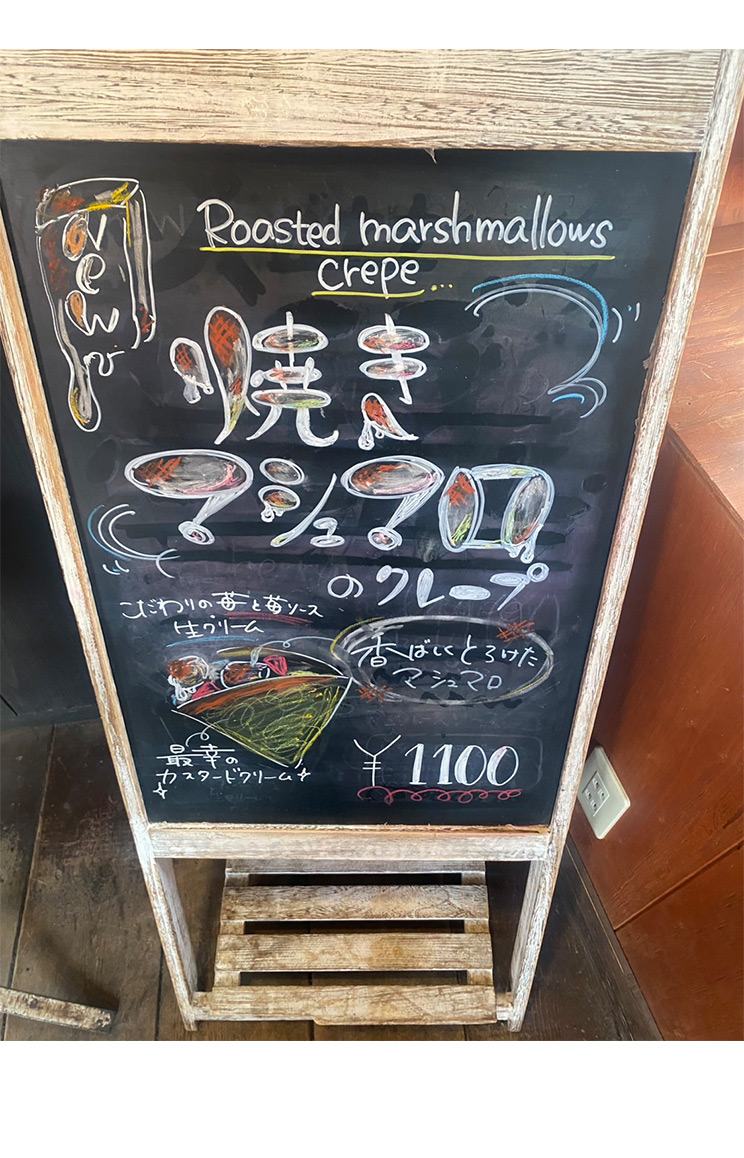 New
Roasted marshmallows
crepe...
焼き
マシュマロ
のクレープ
こだわりの苺と苺ソース
生クリーム
香ばしくとろけた
マシュマロ
最幸の
カスタードクリーム
¥1100